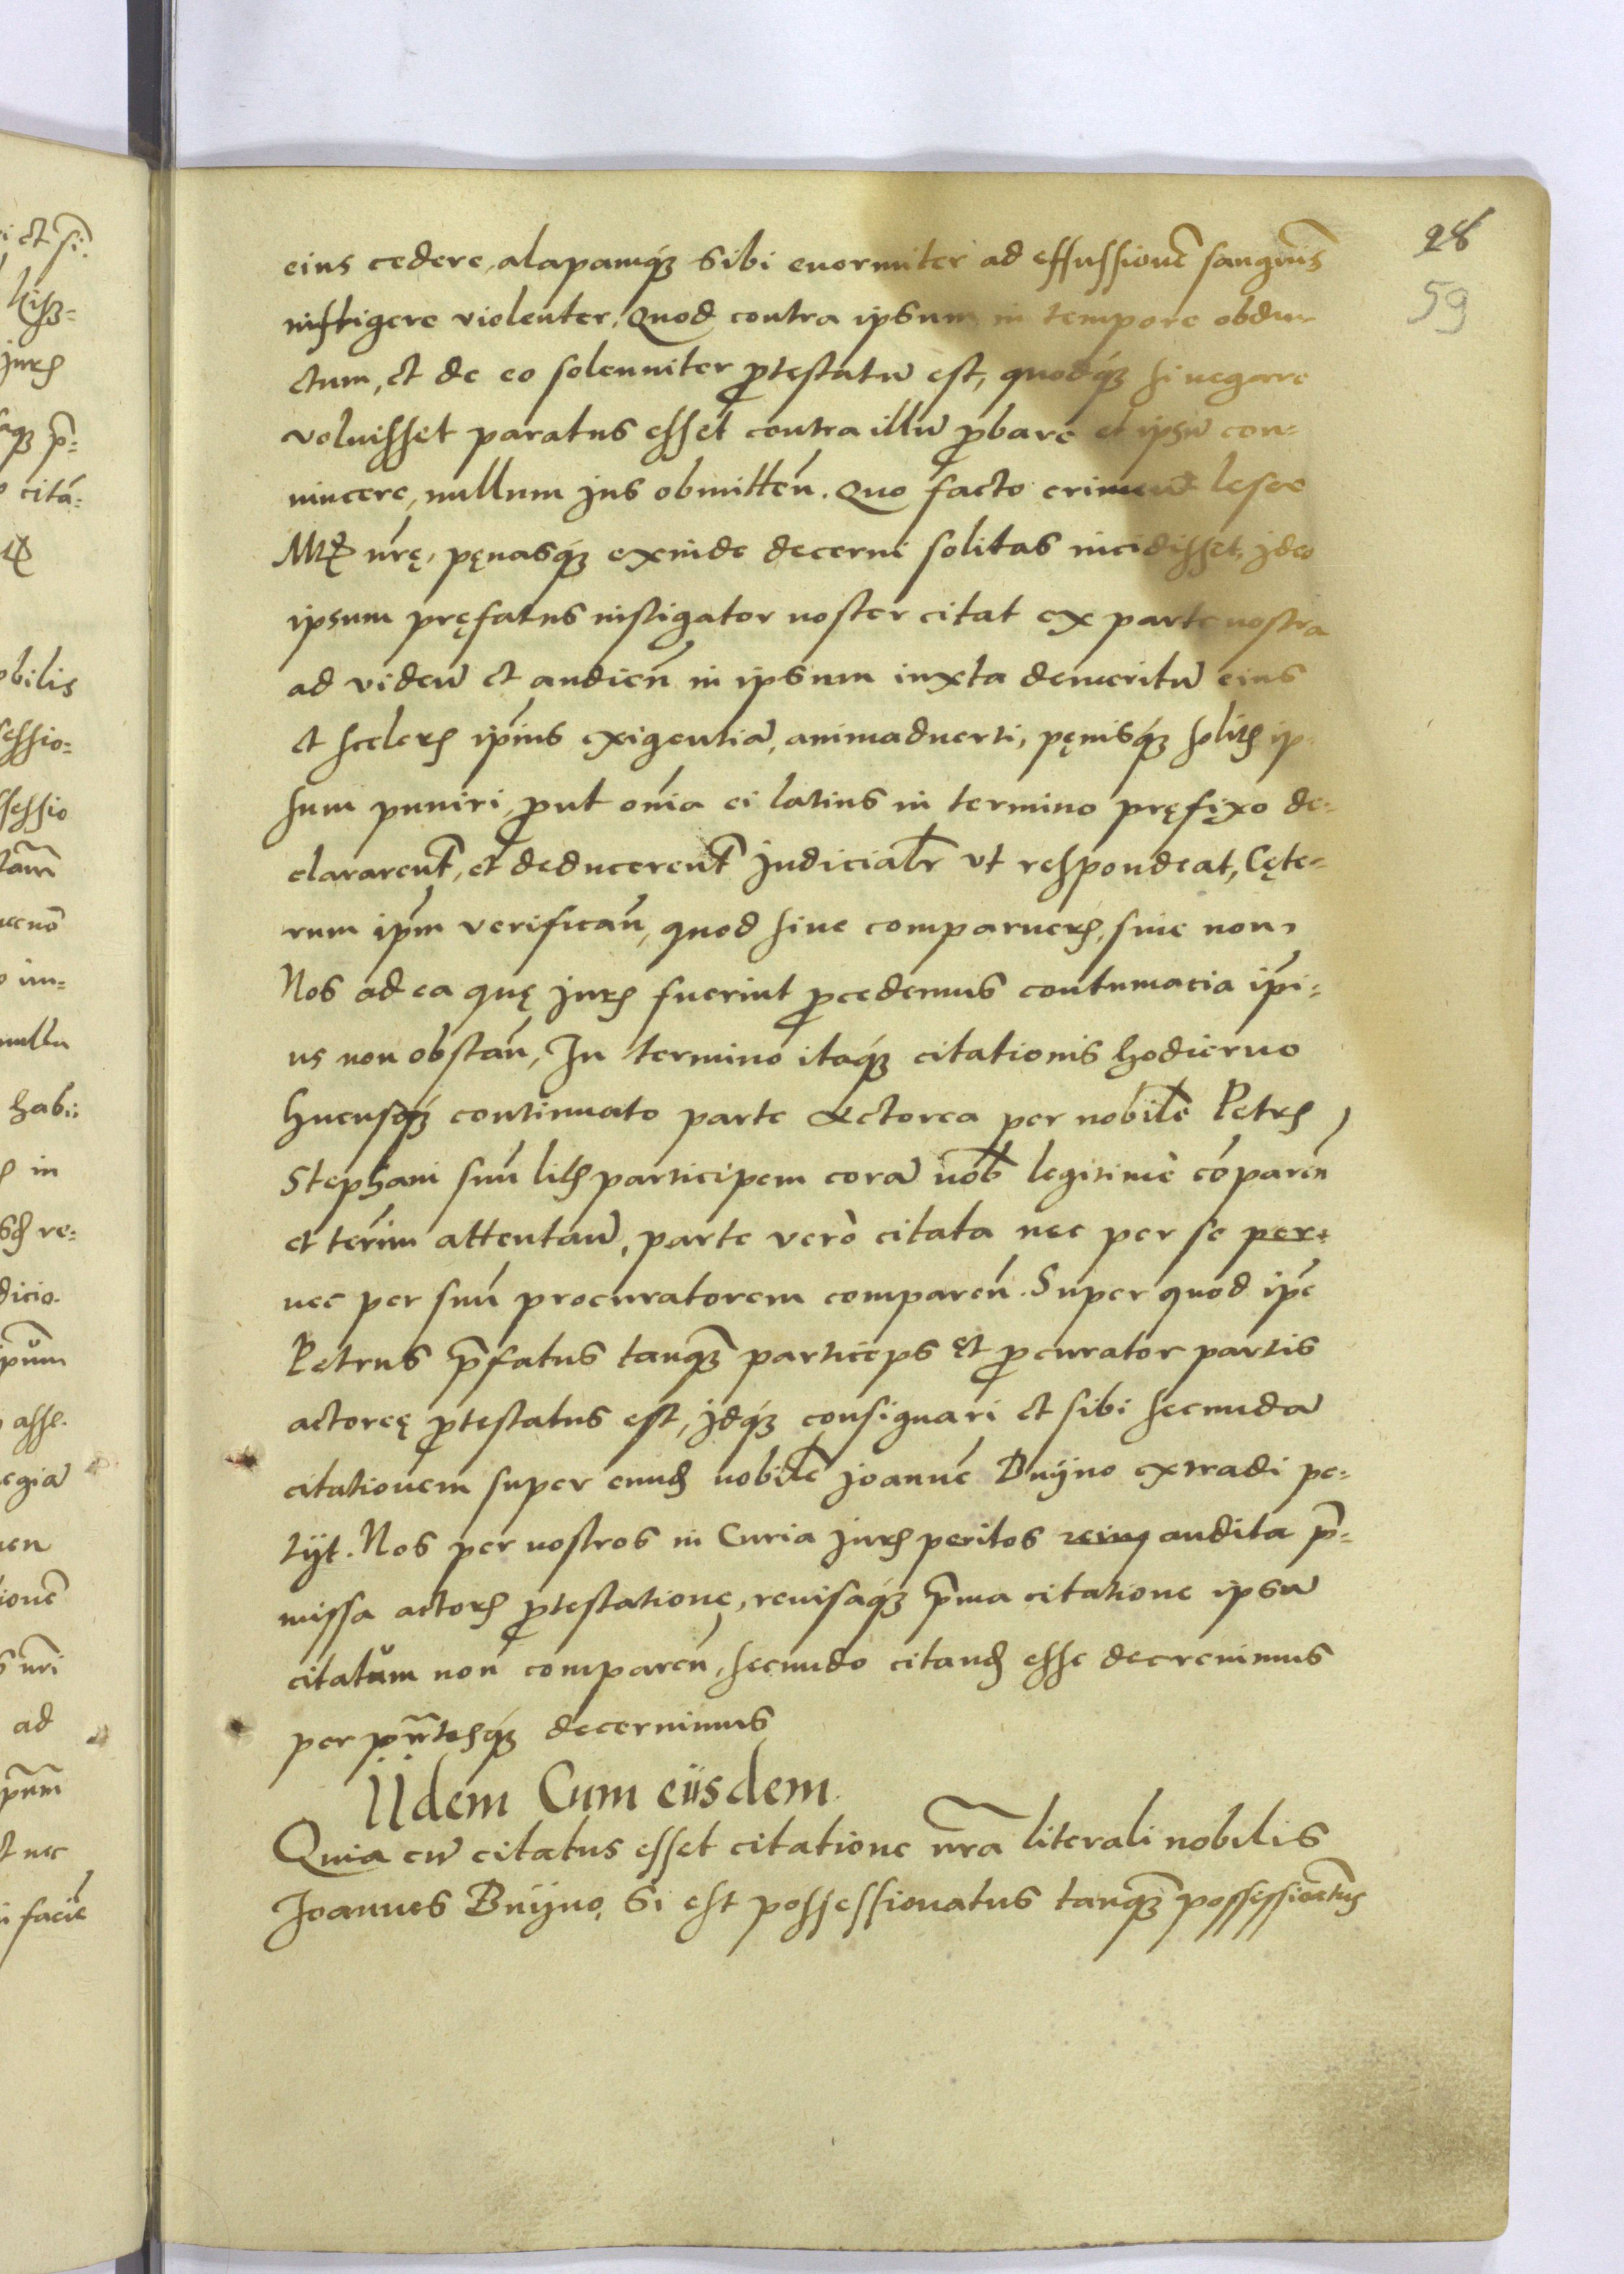 28
59
eius cedere, alapamq́ꝫ sibi enormiter ad effussionē sangͥnis
infligere violenter, Quod contra ipsum in tempore obdu-
ctum, et de eo solenniter ꝓtestatū est, quodq́ꝫ si negare
voluisset paratus esset contra illū ꝓbare et ipsū con-
uincere, nullum jus obmitteń. Quo facto crimen lese
Mtꝭ nrę̄, pęnasq́ꝫ exinde decerni solitas incidisset, jdeo
ipsum pręfatus instigator noster citat ex parte nostra
ad videń et audień in ipsum iuxta demeritū eius
et sceleꝝ ip̄ius exigentiā, animaduerti, pęnisq́ꝫ solitꝭ ip-
sum puniri, ꝓut om̄ia ei latius in termino pręfixo de-
clararent᷑, et deducerent᷑ judicialr̄ vt respondeat, Cęte-
rum ip̄m verificań, quod siue comparueꝝ, siue non,
Nos ad ea quę juꝝ fuerint ꝓcedemus contumacia ip̄i-
us non obstań, In termino itaq́ꝫ citationis hodierno
hucusq́ꝫ continuato parte actorea per nobilē Petꝝ
Stephani suū litꝭ participem corā nob̄ legitimè cōpareń
et ter̄im attentań, parte verò citata nec per se per-
nec per suū procuratorem compareń. Super quod ip̄e
Petrus p̄fatus tanqꝫ̄ particeps et ꝓcurator partis
actoreę ꝓtestatus est, jdq́ꝫ consignari et sibi secundā
citationem super eundꝭ nobilē joannē Buyno extradi pe-
tyt. Nos per nostros in Curia juꝝ peritos audita p̄-
missa actoꝝ ꝓtestatione, reuisaq́ꝫ p̄ma citatione ipsū
citatŭm non compareń, secundo citandꝭ esse decreuimus
per pn̄tesq́ꝫ decernimus
IIdem Cum eiisdem
Quia cū citatus esset citatione nr̄a literali nobilis
Joannes Buyno, Si est possessionatus tanqꝫ̄ possessionatus